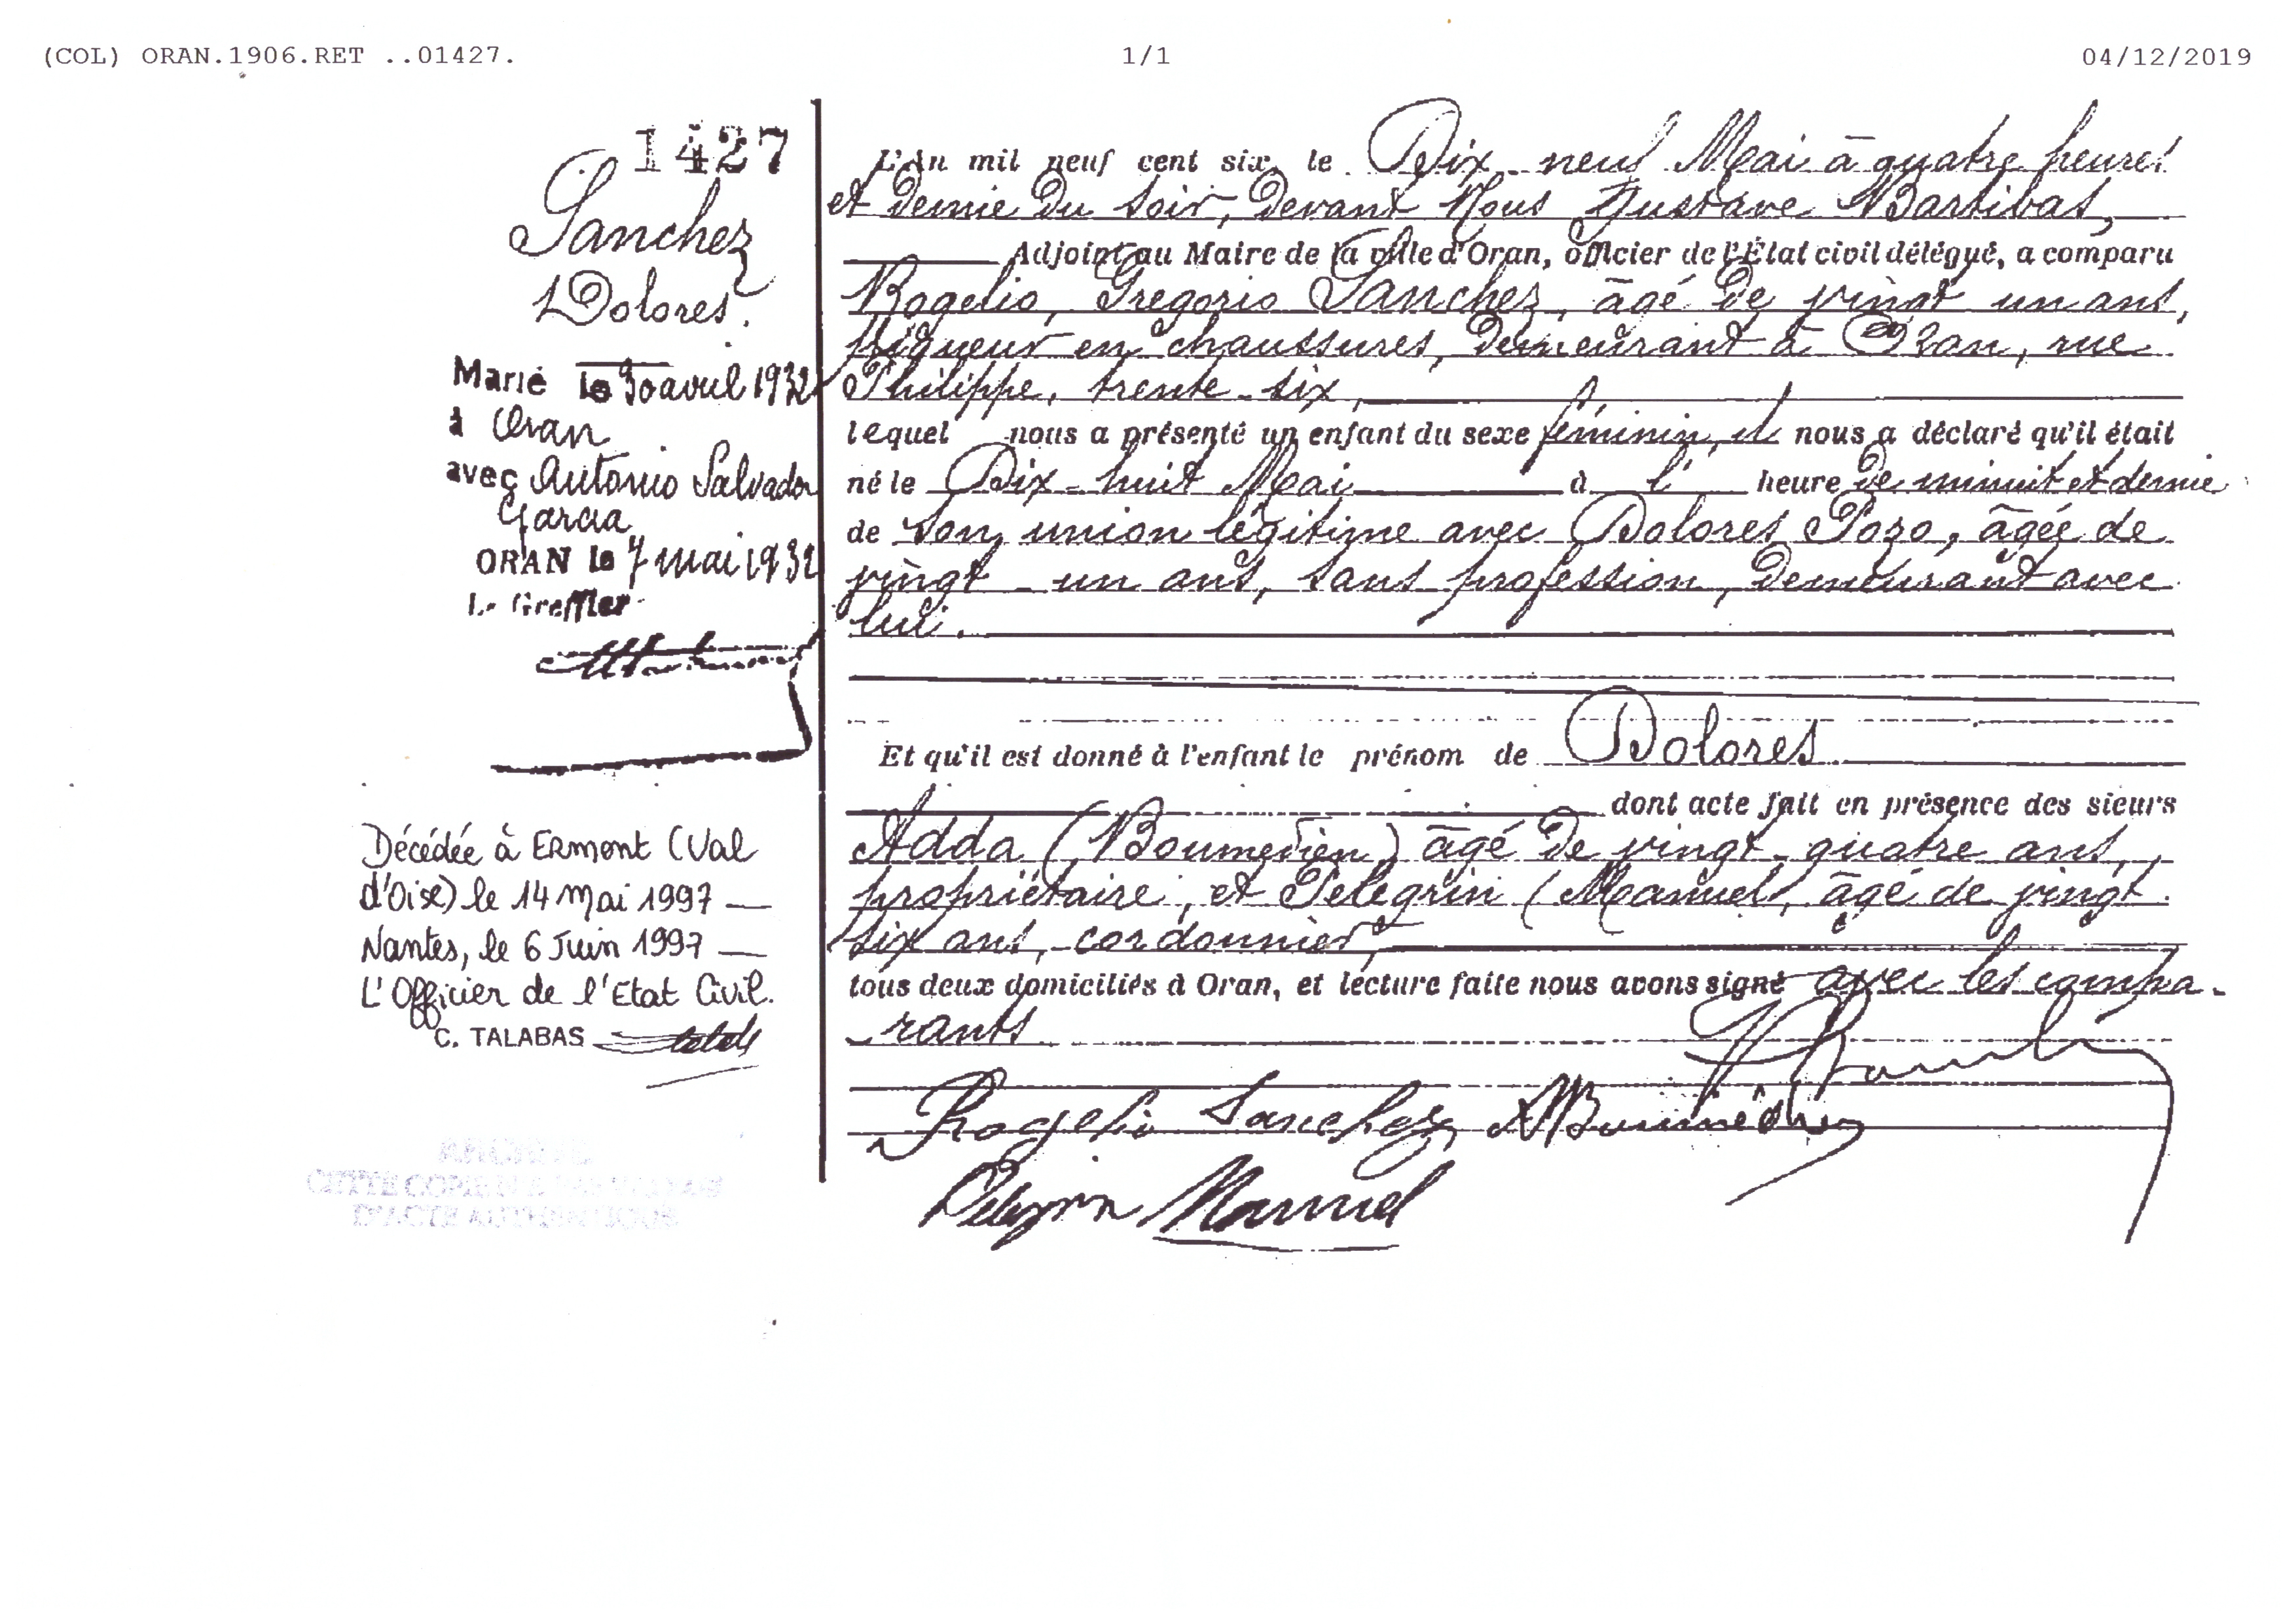 (COL) ORAN.1906.RET ..01427.
1/1
04/12/2019
1427
Sanchez
Dolores.
Marié le 30 avril 1932
à Oran
avec Antonio Salvador
Garcia
ORAN le 7 mai 1932
Le Greffier
Décédée à Ermont (Val
d'Oise) le 14 Mai 1997 —
Nantes, le 6 Juin 1997 —
L'Officier de l'Etat Civil.
C. TALABAS
L'An mil neuf cent six, le Dix-neuf Mai à quatre heures
et demie du soir, devant Nous Gustave
Adjoint au Maire de la ville d'Oran, officier de l'État civil délégué, a comparu
Rogelio, Gregorio Sanchez, âgé de vingt un ans,
piqueur en chaussures, demeurant à Oran, rue
Philippe, trente-six,
lequel nous a présenté un enfant du sexe féminin, et nous a déclaré qu'il était
né le Dix-huit Mai à l' heure de minuit et demie
de son union légitime avec Dolores Pozo, âgée de
vingt-un ans, sans profession, demeurant avec
lui.
Et qu'il est donné à l'enfant le prénom de Dolores
dont acte fait en présence des sieurs
Adda (Boumedien) âgé de vingt-quatre ans,
propriétaire, et Pelegrin (Manuel, âgé de vingt
six ans, cordonnier,
tous deux domiciliés à Oran, et lecture faite nous avons signé avec les compa-
rants
Rogelio Sanchez
Pelegrin Manuel